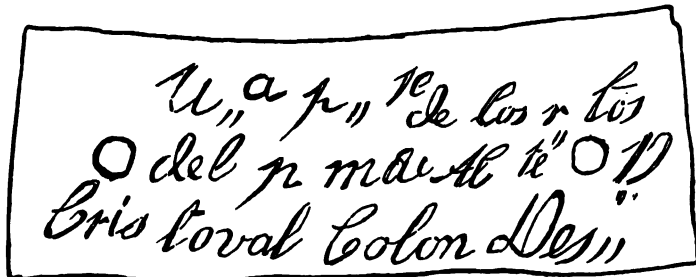 U,, a p,, te de los r tos
O del p mar Al te" O D
Cris toval Colon Des,,